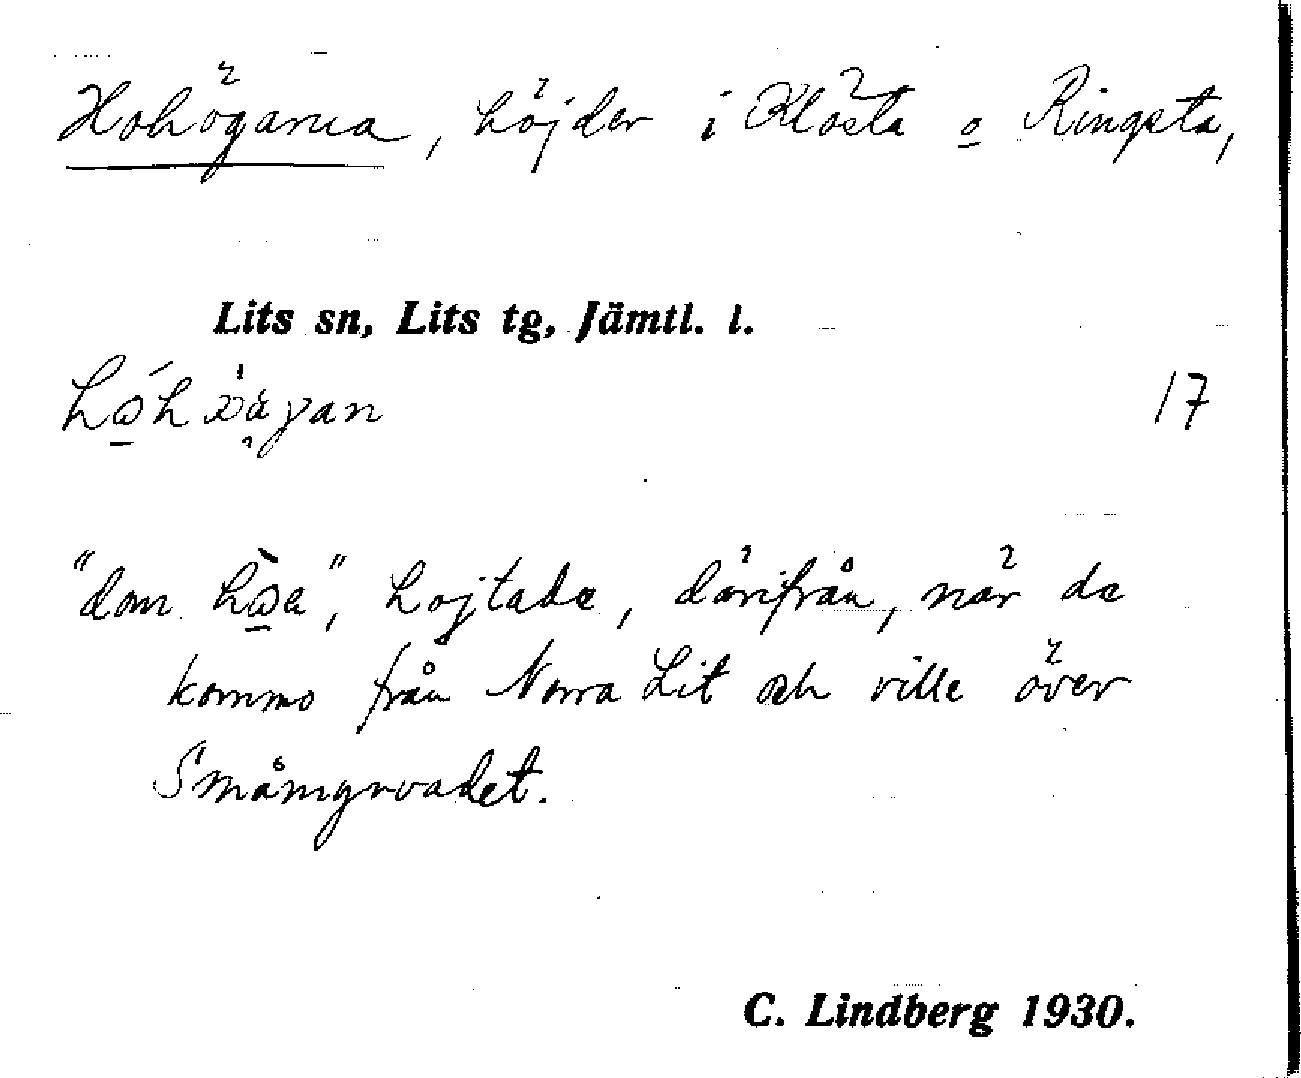 Hohögarna, höjder i Klösta o Ringsta,
Lits sn, Lits tg, Jämtl. l.
17
"dom hòa", hojtade, därifrån, när de
kommo från Norra Lit och ville över
Småmyrvadet.
C. Lindberg 1930.